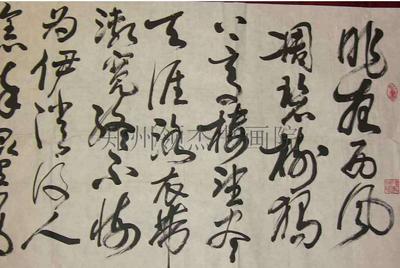 昨夜西风
凋碧树独
上高楼望尽
天涯路衣带
渐宽终不悔
为伊消得人
憔悴众里
郑州杰书画院